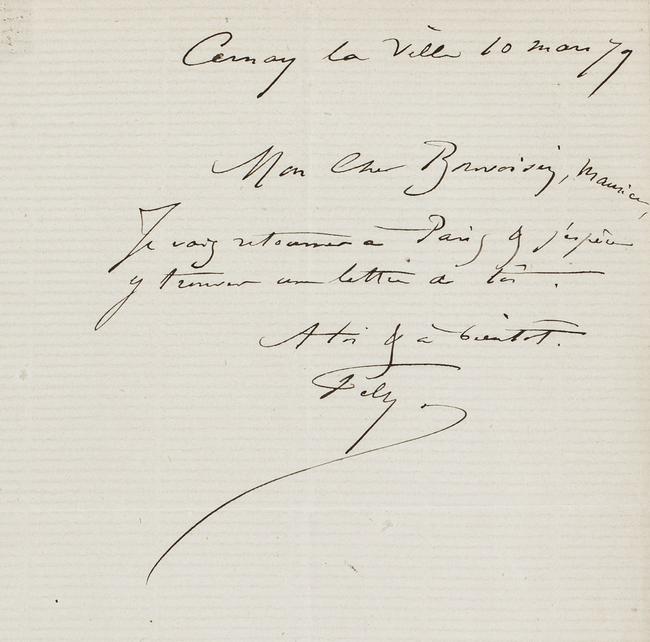 Cernay la Ville 10 mars 79
Mon Cher Bonvoisin, Maurice,
Je vais retourner à Paris & j'espère
y trouver une lettre de toi.
A toi & à bientôt.
Fély